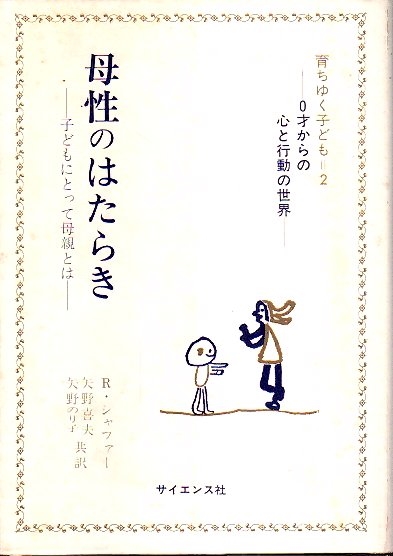 育ちゆく子ども=2
——0才からの
心と行動の世界——
母性のはたらき
——子どもにとって母親とは——
R・シャファー
矢野喜夫
矢野のり子 共訳
サイエンス社